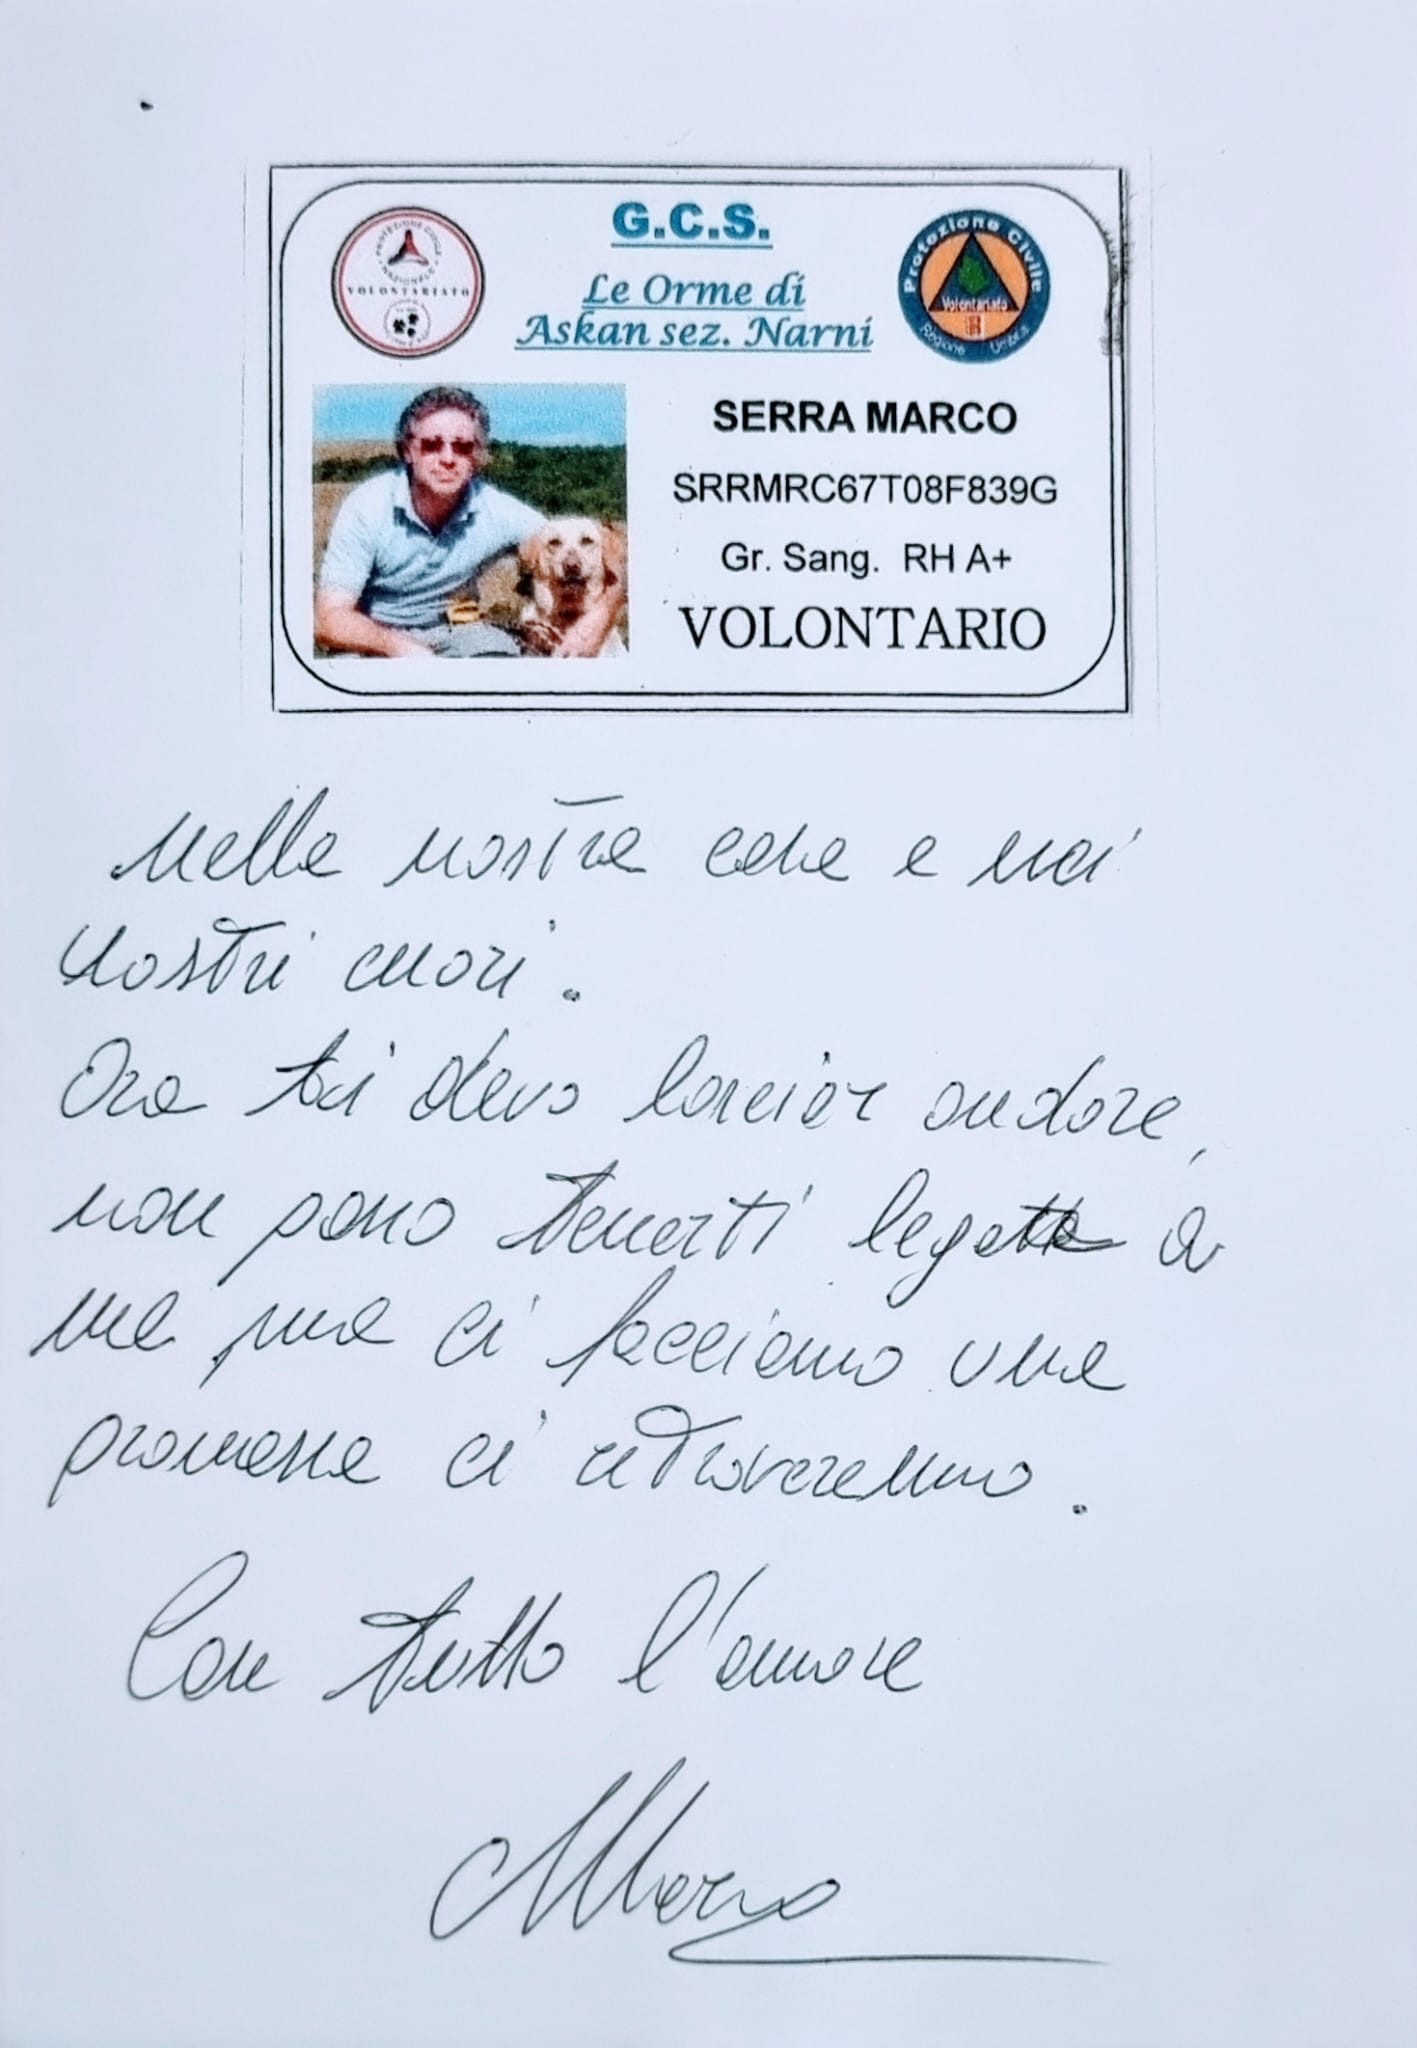 G.C.S.
Le Orme di
Askan sez. Narni
PROTEZIONE CIVILE
NAZIONALE
VOLONTARIATO
Protezione Civile
Volontariato
Regione Umbria
SERRA MARCO
SRRMRC67T08F839G
Gr. Sang. RH A+
VOLONTARIO
Nella nostra casa e nei
nostri cuori.
Ora ti devo lasciar andare,
non posso tenerti legata a
me ma ci facciamo una
promessa ci ritroveremo.
Con tutto l'amore
Marco